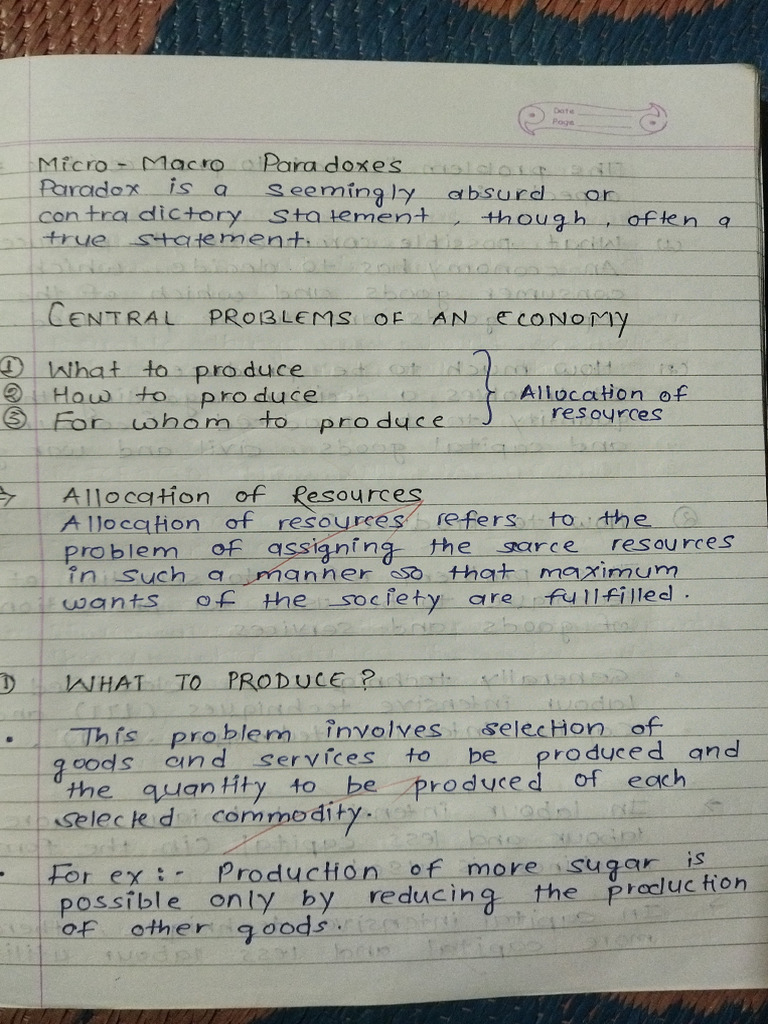 Date
Page
Micro - Macro Paradoxes
Paradox is a seemingly absurd or
contradictory statement, though, often a
true statement.
CENTRAL PROBLEMS OF AN ECONOMY
① What to produce
② How to produce
③ For whom to produce
} Allocation of
resources
→ Allocation of Resources
Allocation of resources refers to the
problem of assigning the sarce resources
in such a manner so that maximum
wants of the society are fullfilled.
① WHAT TO PRODUCE?
• This problem involves selection of
goods and services to be produced and
the quantity to be produced of each
selected commodity.
• For ex :- Production of more sugar is
possible only by reducing the production
of other goods.